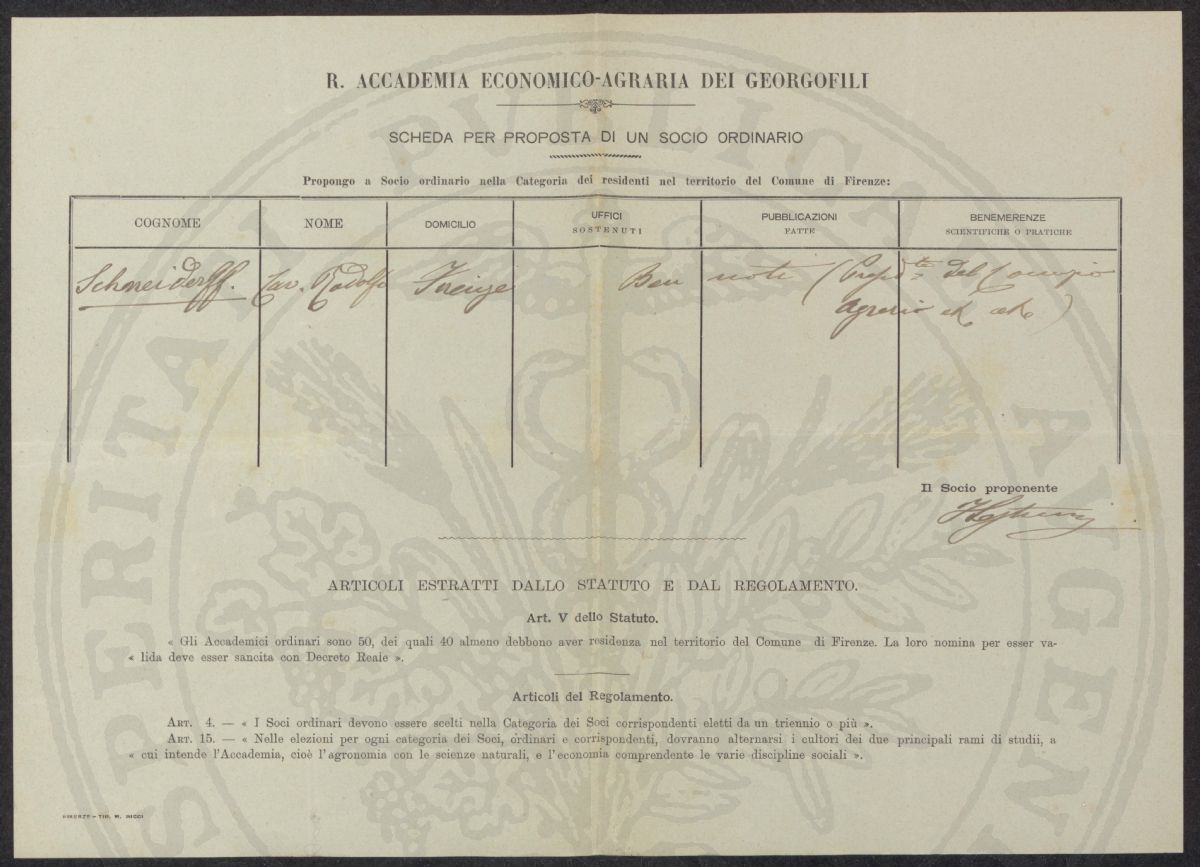 R. ACCADEMIA ECONOMICO-AGRARIA DEI GEORGOFILI
SCHEDA PER PROPOSTA DI UN SOCIO ORDINARIO
Propongo a Socio ordinario nella Categoria dei residenti nel territorio del Comune di Firenze:
COGNOME NOME DOMICILIO UFFICI SOSTENUTI PUBBLICAZIONI FATTE BENEMERENZE SCIENTIFICHE O PRATICHE
Schneiderff. Cav. Rodolfo Firenze Ben note ( del Comizio
Agrario )
Il Socio proponente
ARTICOLI ESTRATTI DALLO STATUTO E DAL REGOLAMENTO.
Art. V dello Statuto.
« Gli Accademici ordinari sono 50, dei quali 40 almeno debbono aver residenza nel territorio del Comune di Firenze. La loro nomina per esser va-
« lida deve esser sancita con Decreto Reale ».
Articoli del Regolamento.
ART. 4. — « I Soci ordinari devono essere scelti nella Categoria dei Soci corrispondenti eletti da un triennio o più ».
ART. 15. — « Nelle elezioni per ogni categoria dei Soci, ordinari e corrispondenti, dovranno alternarsi i cultori dei due principali rami di studii, a
« cui intende l'Accademia, cioè l'agronomia con le scienze naturali, e l'economia comprendente le varie discipline sociali ».
FIRENZE - TIP. M. RICCI